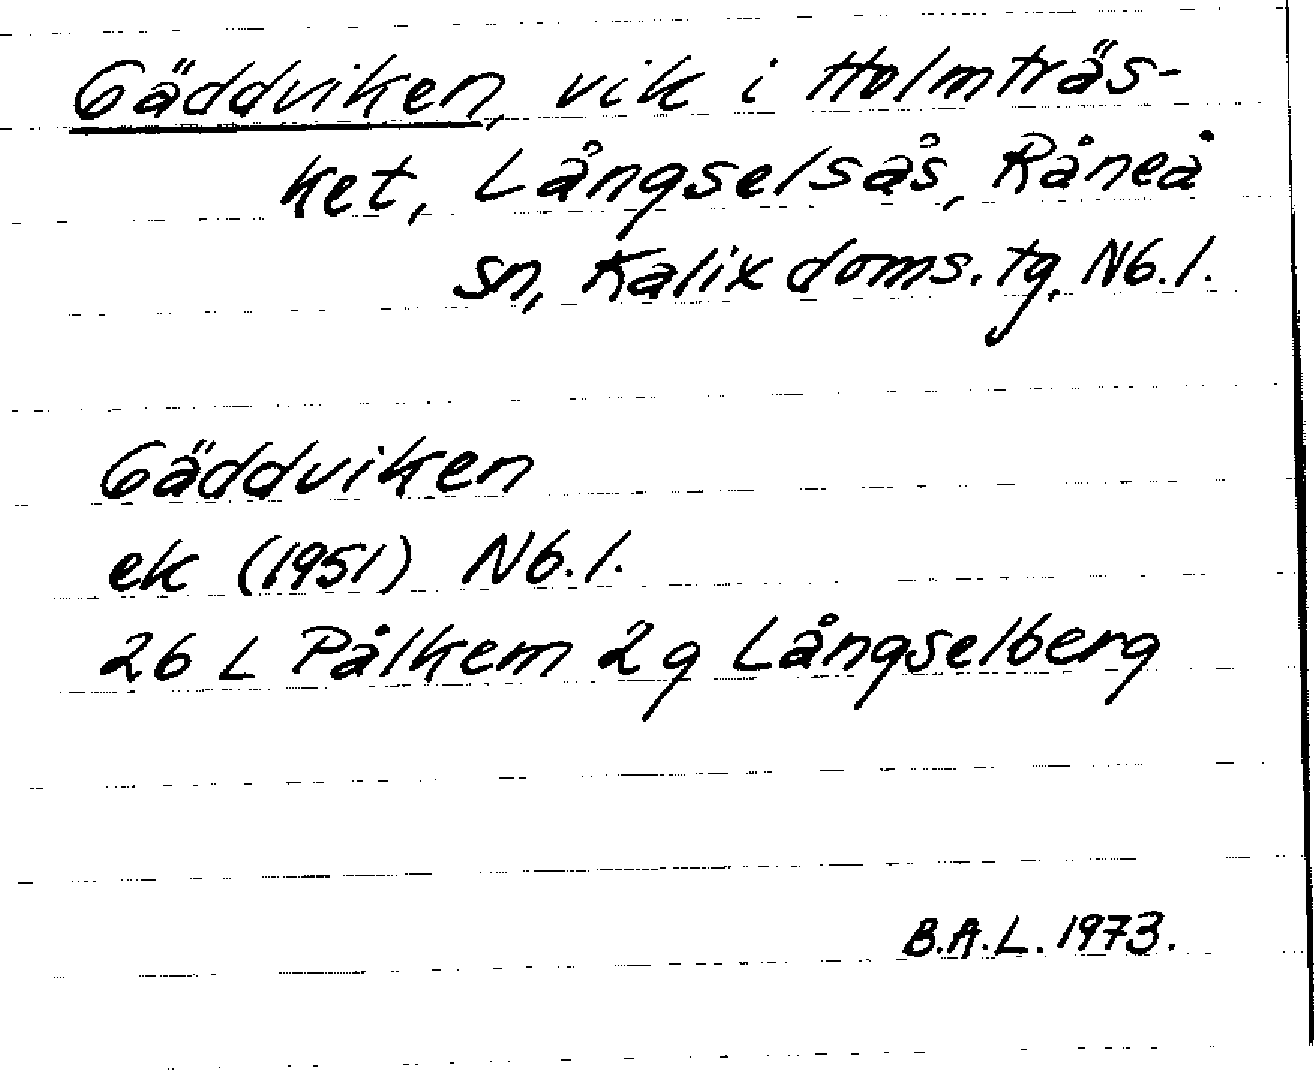 Gäddviken, vik i Holmträs-
ket, Långselsås, Råneå
sn, Kalix doms. tg, Nb. l.
Gäddviken
ek (1951) Nb. l.
26 L Pålkem 2 g Långselberg
B.A.L. 1973.